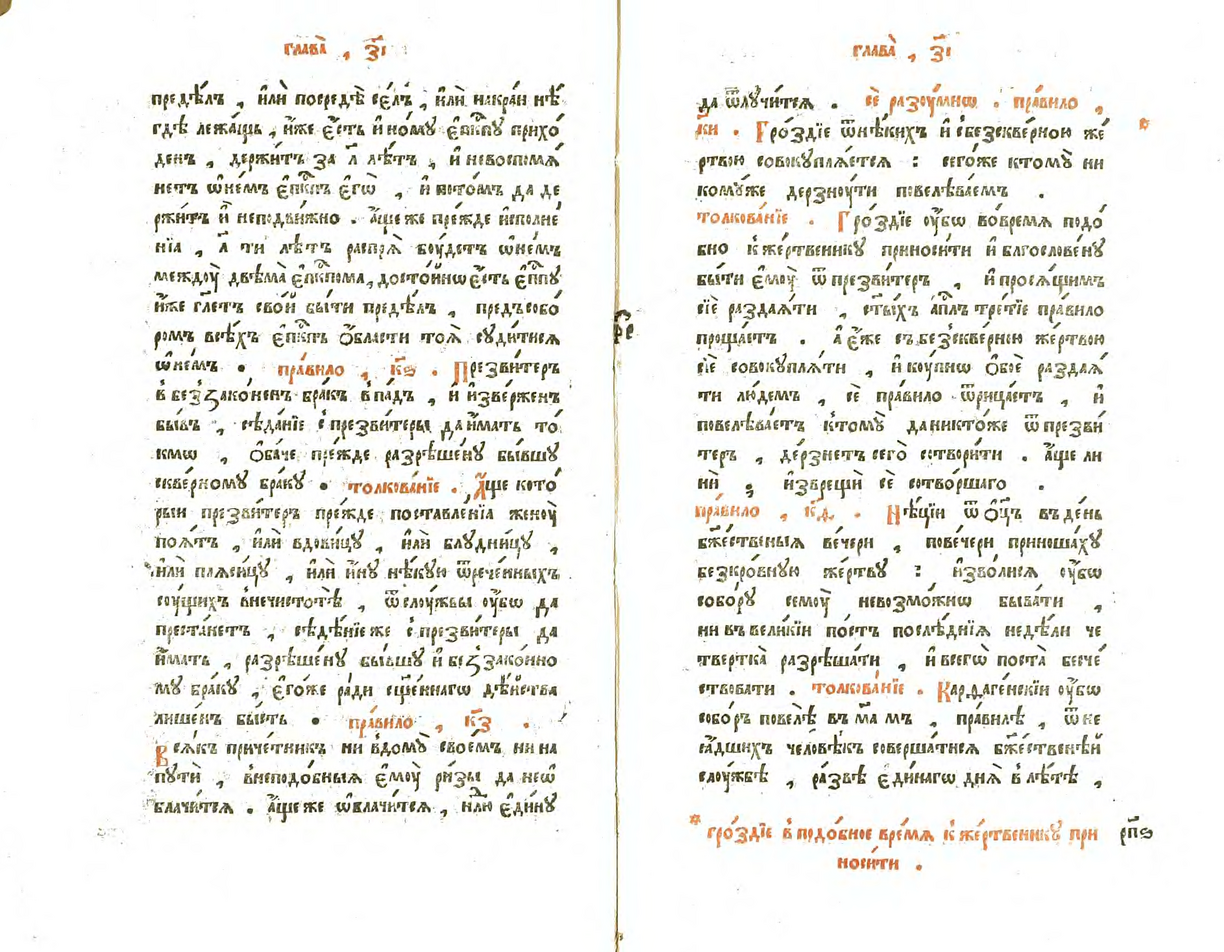 глава̀ , з҃і
предѣ́лъ , и҆лѝ посредѣ̀ се́лъ , и҆лѝ накра́и нѣ́
гдѣ лежа́щь , и҆́же є҆́сть и҆но́му є҆пⷭ҇кпу прихо́
денъ , держи́тъ за л҃ лѣ́тъ , и҆ невоспомѧ
не́тъ ѡ҆не́мъ є҆пⷭ҇кпъ є҆гѡ̀ , и҆ пото́мъ да де
ржи́тъ и҆̀ неподви́жно . а҆́щеже пре́жде и҆сполне́
нїа , л҃ ти лѣ́тъ распрѧ̀ бꙋ́детъ ѡ҆не́мъ
междоу̀ двѣма̀ є҆пⷭ҇кпома , досто́йнѡ є҆́сть є҆пⷭ҇пу
и҆́же гл҃етъ сво́й бы́ти предѣ́лъ , предъсобо́
ромъ всѣ́хъ є҆пⷭ҇кпъ ѻ҆́бласти тоѧ̀ суди́тисѧ
ѡ҆не́мъ . пра́вило , к҃ѕ . Презви́теръ
в беззако́ненъ бра́къ впа́дъ , и҆ и҆зве́рженъ
бы́въ , сѣда́нїе с презви́теры да и҆́мать то́
кмѡ , ѻ҆ба́че пре́жде разрѣше́ну бы́вшу
скве́рному бра́ку . толкова́нїе . А҆́ще кото́
рыи презви́теръ пре́жде поставле́нїа женоу̀
поѧ́тъ , и҆лѝ вдови́цу , и҆лѝ блудни́цу ,
и҆лѝ плѧса́вицу , и҆лѝ и҆́ну нѣ́кую ѿрече́нныхъ
соу́щихъ внечистотѣ̀ , ѿслоу́жбы оу҆́бѡ да
преста́нетъ , сѣдѣ́нїеже с презви́теры да
и҆́мать , разрѣше́ну бы́вшу и҆ беззако́нно
му бра́ку , є҆гѡ́же ра́ди сщ҃е́ннагѡ дѣ́йства
лише́нъ бы́сть . пра́вило , к҃з .
Всѧ́къ приче́тникъ ни вдому̀ свое́мъ ни на
путѝ , внеподо́бныѧ є҆моу̀ ри́зы да неѡ
блачи́тсѧ . а҆́щеже ѡ҆блачи́тсѧ , нⷣлю є҆ди́ну

глава̀ , з҃і
да ѿлучи́тсѧ . сѐ разоу́миѡ . пра́вило ,
к҃и . Гро́здїе ѿнѣ́кихъ и҆ сбезскве́рною же́
ртвою совокуплѧ́етсѧ : сего́же ктому̀ ни
кому́же дерзноу́ти повелѣва́емъ .
толкова́нїе . Гро́здїе оу҆́бѡ во́времѧ подо́
бно к же́ртвенику приноси́ти и҆ благослове́ну
бы́ти є҆моу̀ ѿ презви́теръ , и҆ просѧ́щимъ
сїѐ раздаѧ́ти , ст҃ы́хъ а҆пⷭ҇лъ тре́тїе пра́вило
проща́етъ . а҆ є҆́же съ безскве́рною же́ртвою
сїѐ совокуплѧ́ти , и҆ коу́пнѡ ѻ҆боѐ раздаѧ́
ти лю́демъ , сѐ пра́вило ѿрица́етъ , и҆
повелѣва́етъ ктому̀ да никто́же ѿ презви́
теръ , де́рзнетъ сего̀ сотвори́ти . а҆́ще ли
нѝ ; и҆зврещѝ сѐ сотво́ршаго .
пра́вило , к҃д . Нѣ́цїи ѿ ѻ҆ц҃ъ въ де́нь
бж҃е́ственыѧ ве́чери , повече́ри приноша́ху
безкро́вную же́ртву : и҆зво́лисѧ оу҆́бѡ
собо́ру семоу̀ невозмо́жнѡ быва́ти ,
ни въ вели́кїи по́стъ послѣ́днїѧ недѣ́ли че
тверткà разрѣша́ти , и҆ всегѡ̀ поста̀ бесче́
ствовати . толкова́нїе . Кардаге́нскїи оу҆́бѡ
собо́ръ повелѣ̀ въ м҃а мъ , пра́вилѣ , ѿ не
ꙗ҆́дшихъ человѣ́къ соверша́тисѧ бж҃е́ственѣй
слоу́жбѣ , ра́звѣ є҆ди́нагѡ днѧ̀ влѣ́тѣ ,
* гро́здїе в подо́бное вре́мѧ к же́ртвенику при
носи́ти .
рп҃ѕ